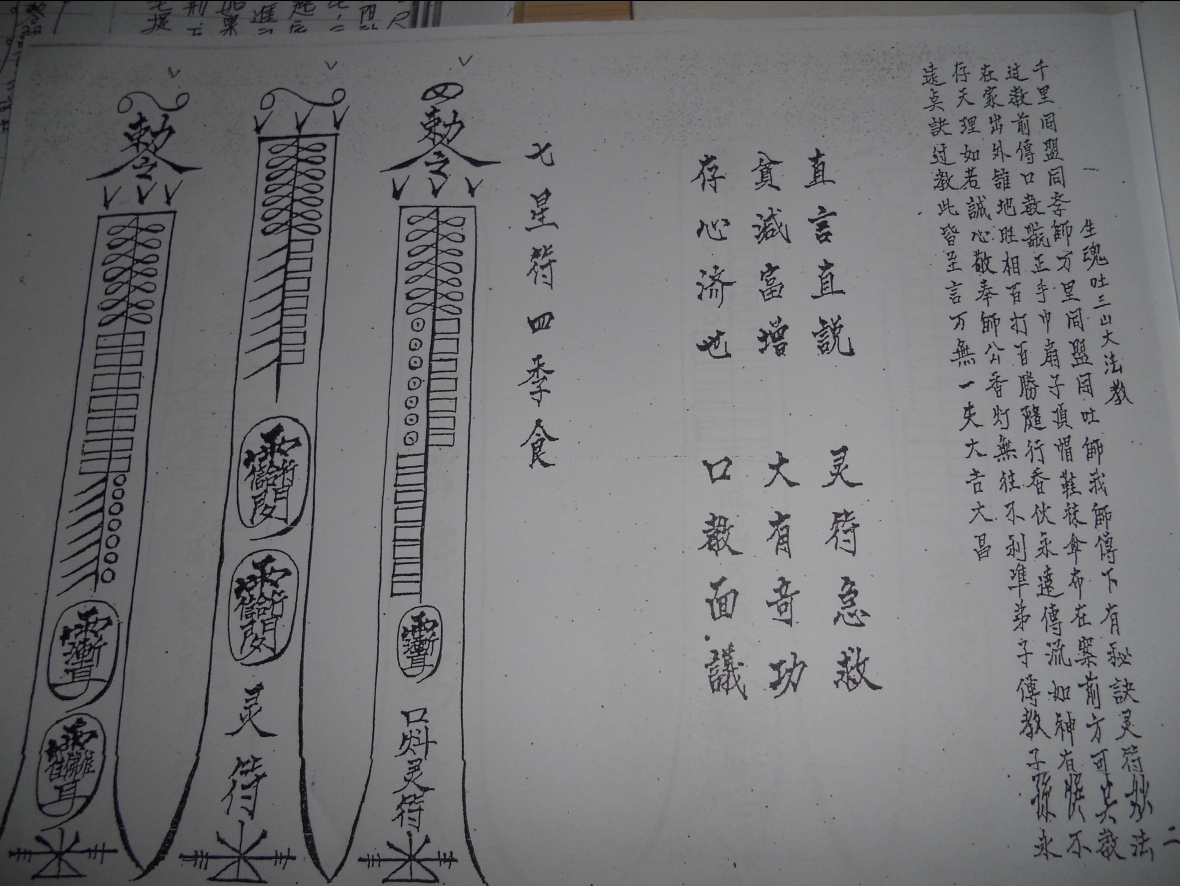 一
生魂吐三山大法教
千里同盟同李師万里同盟同吐師我師傳下有秘訣灵符妙法
过教前傳口教 正手巾扇子頂帽鞋袜傘布在案前方可 教
在家出外 地旺相百打百勝隨行香伙永遠傳流如神有 不
存天理如若誠心敬奉師公香灯無往不利准弟子傳教子孫永
遠真訣过教此皆至言万無一失大吉大昌
二
直言直説 灵符急救
貧減富增 大有奇功
存心济世 口教面議
七星符四季食
敕令
灵符
灵符
敕令